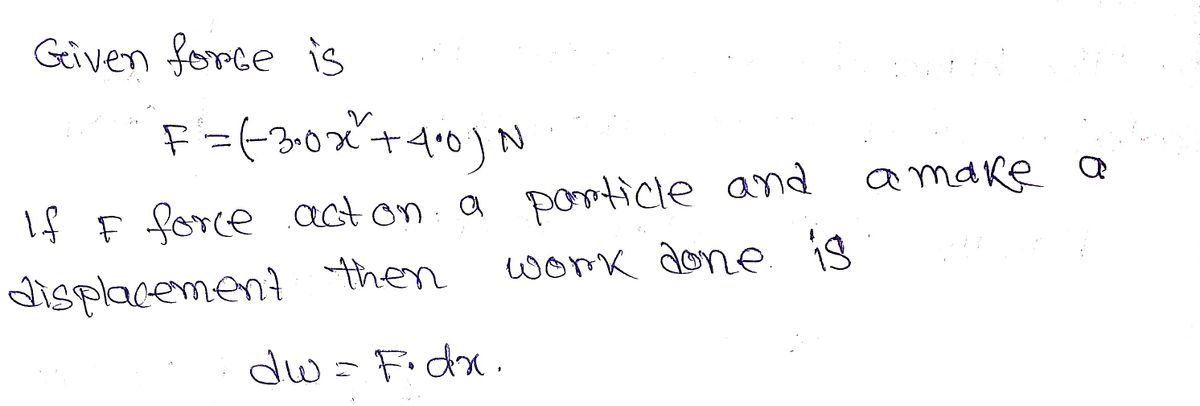 Given force is
F = (-3.0x² + 4.0) N
If F force act on a particle and a make a
displacement then work done is
dw = F. dx.